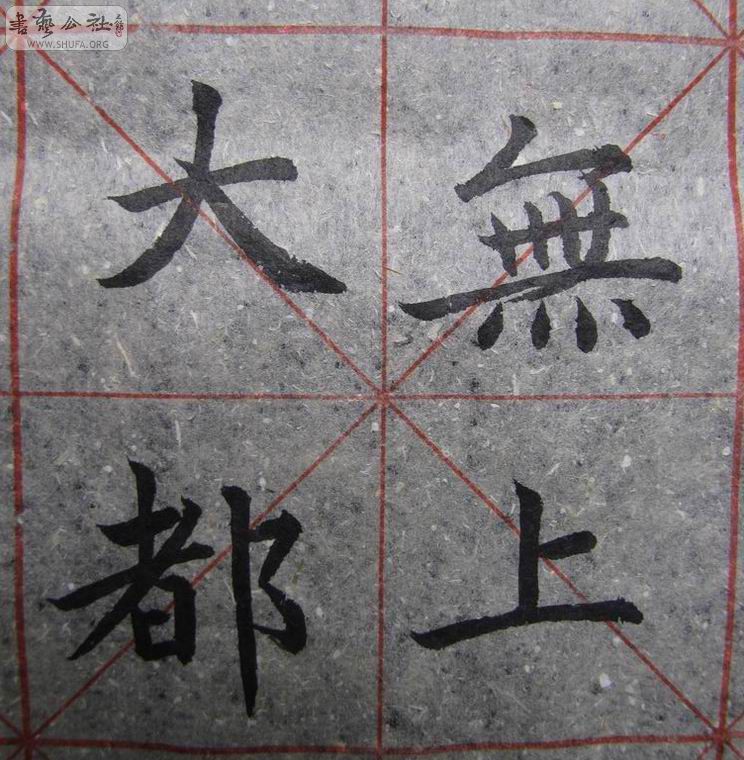 無上
大都
書藝公社
WWW.SHUFA.ORG